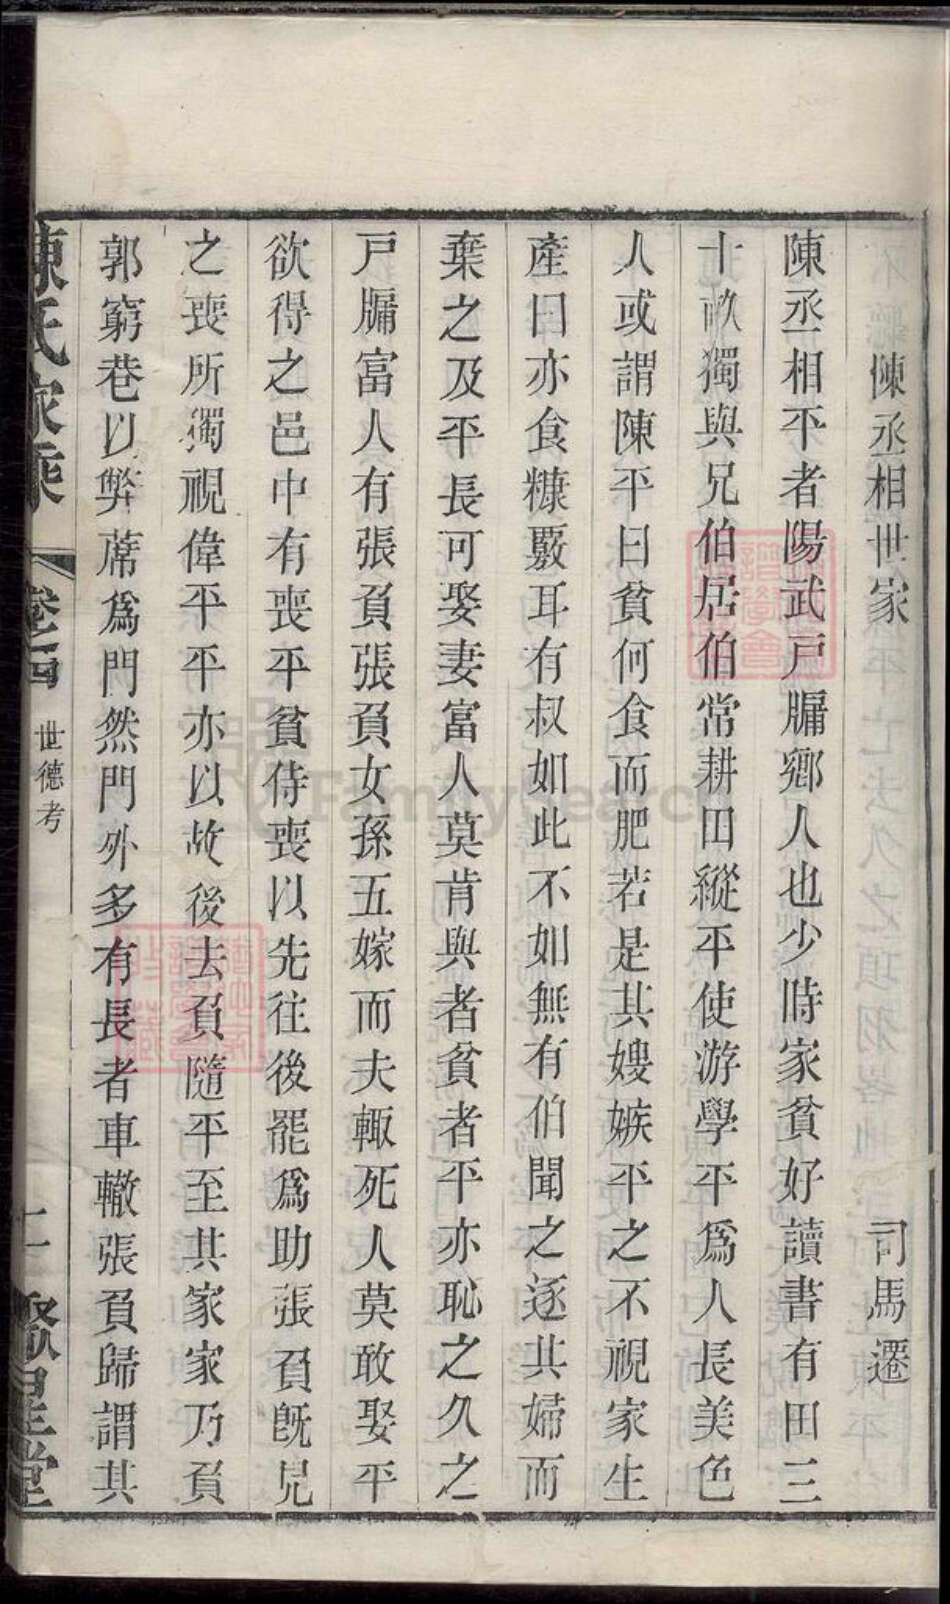 陳丞相世家　司馬遷
陳丞相平者陽武戸牖鄉人也少時家貧好讀書有田三
十畝獨與兄伯居伯常耕田縱平使游學平爲人長美色
人或謂陳平曰貧何食而肥若是其嫂嫉平之不視家生
產曰亦食糠覈耳有叔如此不如無有伯聞之逐其婦而
棄之及平長可娶妻富人莫肯與者貧者平亦恥之久之
戸牖富人有張負張負女孫五嫁而夫輒死人莫敢娶平
欲得之邑中有喪平貧侍喪以先往後罷爲助張負旣見
之喪所獨視偉平平亦以故後去負隨平至其家家乃負
郭窮巷以弊蓆爲門然門外多有長者車轍張負歸謂其
陳氏家乘　卷之四　世德考　二　聚星堂